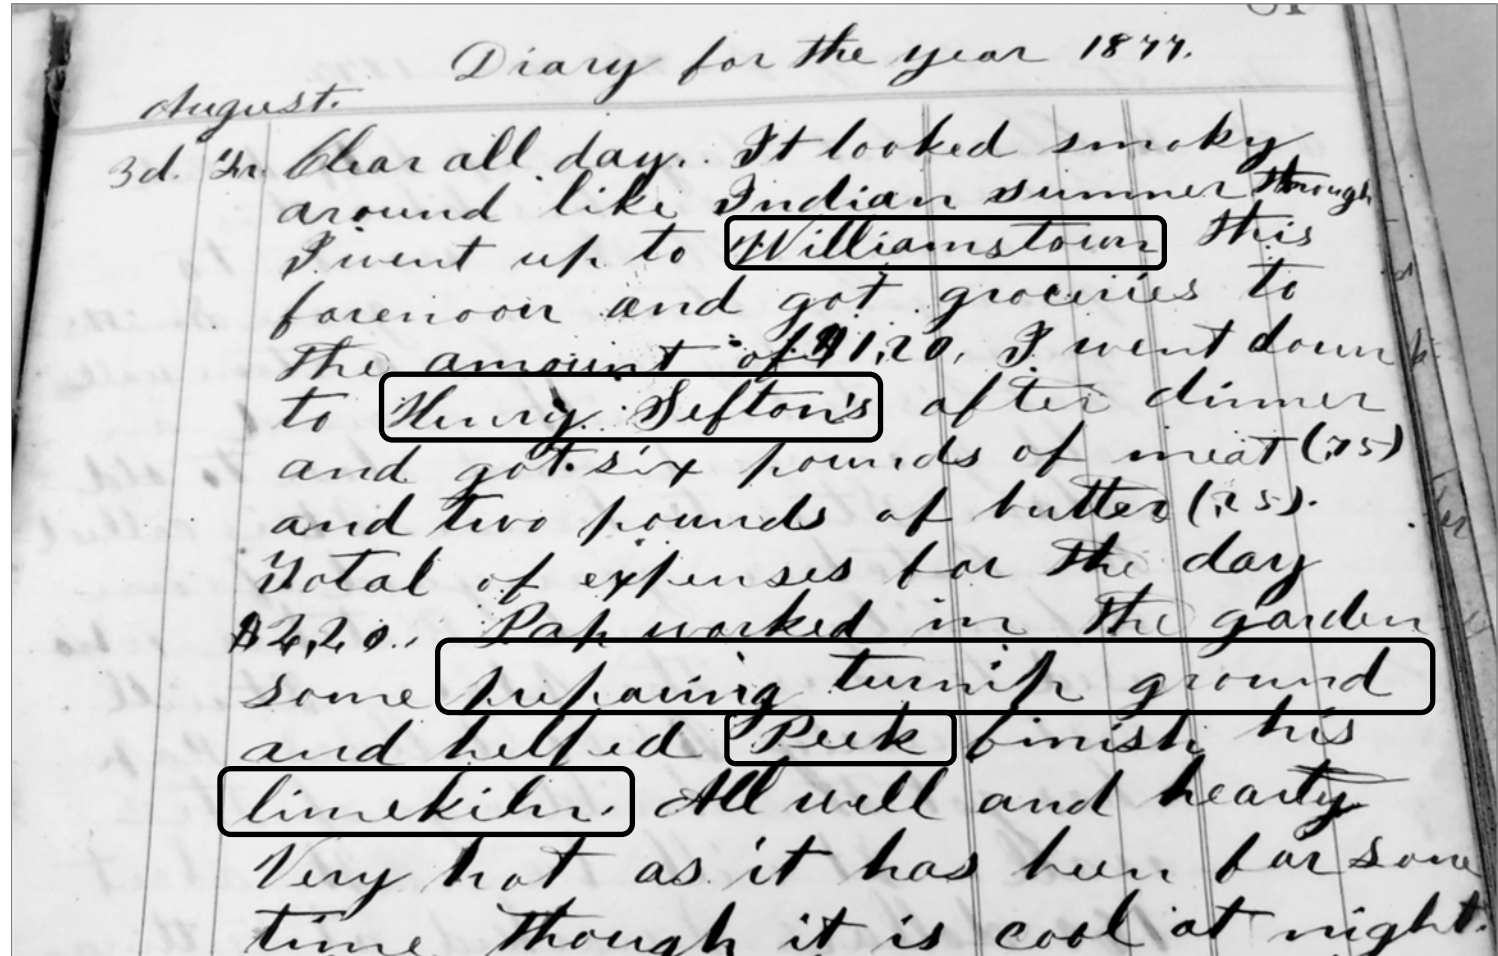 Diary for the year 1877.
August.
3d. Fr. Clear all day. It looked smoky
around like Indian summer through
I went up to Williamstown this
forenoon and got groceries to
the amount of $1.20. I went down
to Henry Sefton's after dinner
and got six pounds of meat (.75)
and two pounds of butter (.25).
Total of expenses for the day
$2.20. Pap worked in the garden
some preparing turnip ground
and helped Peek finish his
limekiln. All well and hearty
Very hot as it has been for some
time though it is cool at night.